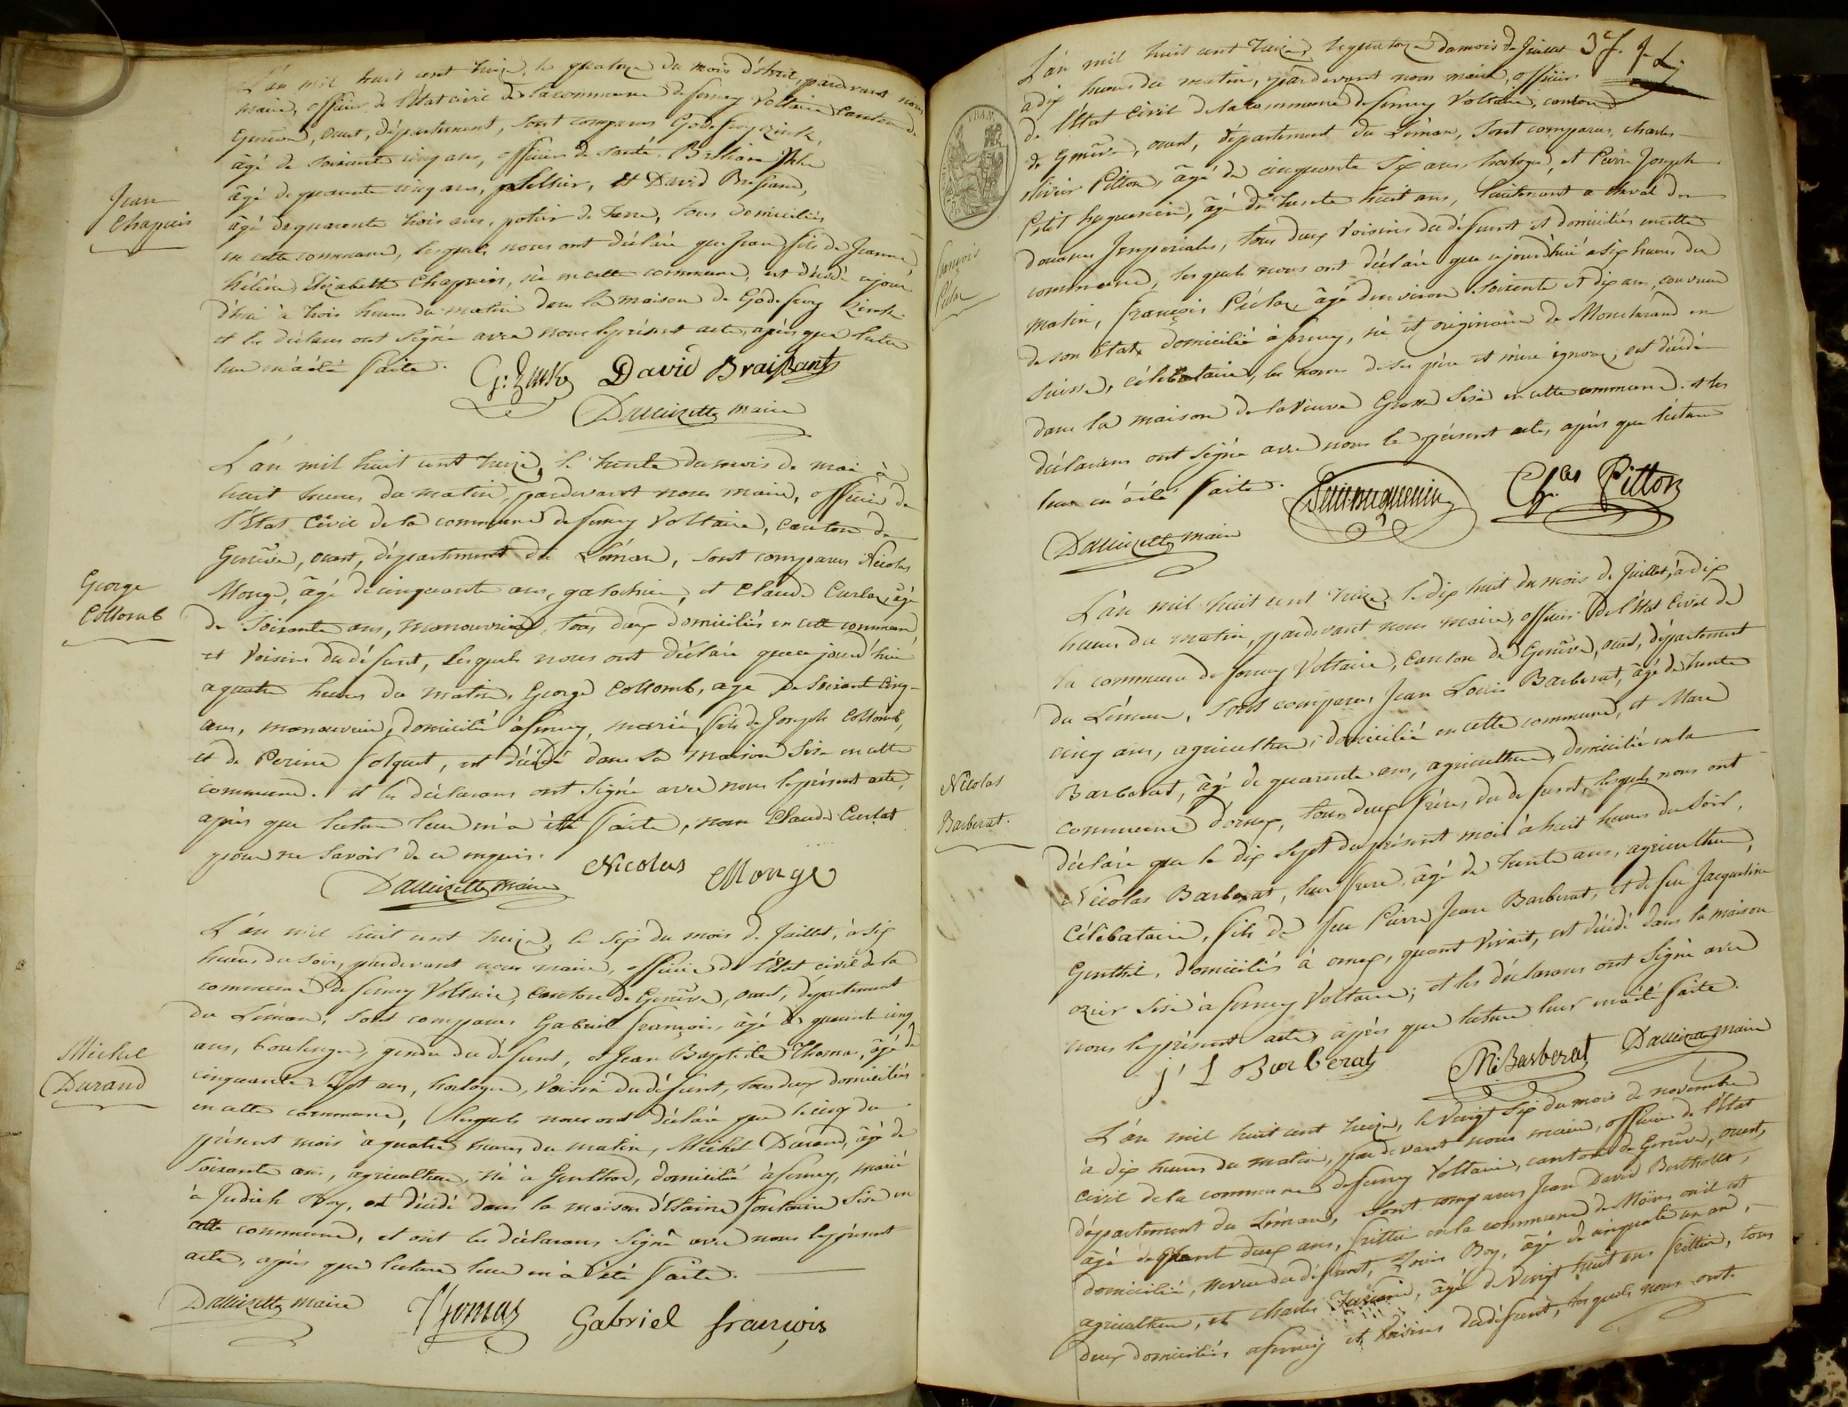 L'an mil huit cent treize, le quatorze du mois d'Avril, pardevant nous
maire, officier de l'état civil de la commune de ferney Voltaire Canton de
Genève, ouest, département, sont comparus Godefroy
âgé de soixante cinq ans, officier de santé.
âgé de quarante cinq ans, et David
âgé de quarante trois ans, potier de terre, tous domiciliés
en cette commune, lesquels nous ont déclaré que Jean fils de Jeanne
hélène Elizabeth Chapuis, né en cette commune, est décédé aujour
d'hui à trois heures du matin dans la maison de Godefroy
et les déclarans ont signé avec nous le présent acte, après que lecture
leur en a été faite.
Jean
Chapuis
David Braissant
Dallizette maire
L'an mil huit cent treize, le trente du mois de mai à
huit heures du matin, pardevant nous maire, officier de
l'état Civil de la commune de ferney Voltaire, canton de
Genève, ouest, département du Léman, sont comparus Nicolas
Monge, âgé de cinquante ans, et Claude Curlat, âgé
de soixante ans, manouvrier, tous deux domiciliés en cette commune
et voisins du défunt, lesquels nous ont déclaré que ce jourd'hui
a quatre heures du matin, George Collomb, age de soixante cinq
ans, manouvrier, domicilié à ferney, marié, fils de Joseph Collomb,
et de Perine folquet, est décédé dans sa maison sise en cette
commune. et les déclarans ont signé avec nous le présent acte,
après que lecture leur en a été faite, non Claude Curlat
pour ne savoir de ce enquis.
George
Collomb
Dallizette maire Nicolas Monge
L'an mil huit cent treize, le six du mois de Juillet, à six
heures du soir, pardevant nous maire, officier de l'état civil de la
commune de ferney Voltaire, canton de Genève, ouest, département
du Léman, sont comparus Gabriel françois, âgé de quarante cinq
ans, boulenger, gendre du défunt, et Jean Baptiste Thomas, âgé de
cinquante sept ans, horloger, voisin du défunt, tous deux domiciliés
en cette commune, lesquels nous ont déclaré que le cinq du
présent mois à quatre heures du matin, Michel Durand, âgé de
soixante ans, agriculteur, né à Genthod, domicilié à ferney, marié
à Judith Roy, est décédé dans la maison d'Etienne fontaine sise en
cette commune, et ont les déclarans signé avec nous le présent
acte, après que lecture leur en a été faite.
Michel
Durand
Dallizette maire Thomas Gabriel françois
L'an mil huit cent treize, le quatorze du mois de Juillet
à dix heures du matin, pardevant nous maire, officier
de l'état Civil de la commune de ferney Voltaire, canton
de Genève, ouest, département du Léman, sont comparus, charles
olivier Pitton, âgé de cinquante six ans, horloger, et Pierre Joseph
Petit huguenin, âgé de trente huit ans, lieutenant a cheval des
douanes Impériales, tous deux voisins du défunt et domiciliés en cette
commune, lesquels nous ont déclaré que aujourd'hui a six heures du
matin, françois, âgé d'environ soixante et dix ans, couvreur
de son état, domicilié à ferney, né et originaire de Montchérand en
suisse, célibataire, les noms de ses père et mère ignorés, est décédé
dans la maison de la veuve Grosse sise en cette commune. et les
déclarans ont signé avec nous le présent acte, après que lecture
leur en a été faite.
françois
Petithuguenin Chas Pitton
Dallizette maire
L'an mil huit cent treize, le dix huit du mois de Juillet, à dix
heures du matin, pardevant nous maire, officier de l'état civil de
la commune de ferney Voltaire, canton de Genève, ouest, département
du Léman, sont comparus, Jean Louis Barberat, âgé de trente
cinq ans, agriculteur, domicilié en cette commune, et Marc
Barberat, âgé de quarante ans, agriculteur, domicilié en la
commune d'ornex, tous deux frères du défunt, lesquels nous ont
déclaré que le dix sept du présent mois à huit heures du soir,
Nicolas Barberat, leur frere, âgé de trente ans, agriculteur,
célibataire, fils de feu Pierre Jean Barberat, et de feu Jacqueline
Genthil, domiciliés à ornex, quand vivait, est décédé dans la maison
sise à ferney Voltaire; et les déclarans ont signé avec
nous le présent acte, après que lecture leur en a été faite.
Nicolas
Barberat.
j' L Barberat M Barberat Dallizette maire
L'an mil huit cent treize, le vingt six du mois de novembre
à dix heures du matin, pardevant nous maire, officier de l'état
civil de la commune de ferney Voltaire, canton de Genève, ouest,
département du Léman, sont comparus Jean David Berthollet,
âgé de deux ans, en la commune de Moëns où il est
domicilié, neveu du défunt, Louis Roy, âgé de cinquante un an,
agriculteur, et charles, âgé de vingt huit ans, tous
deux domiciliés a ferney et voisins du défunt, lesquels nous ont